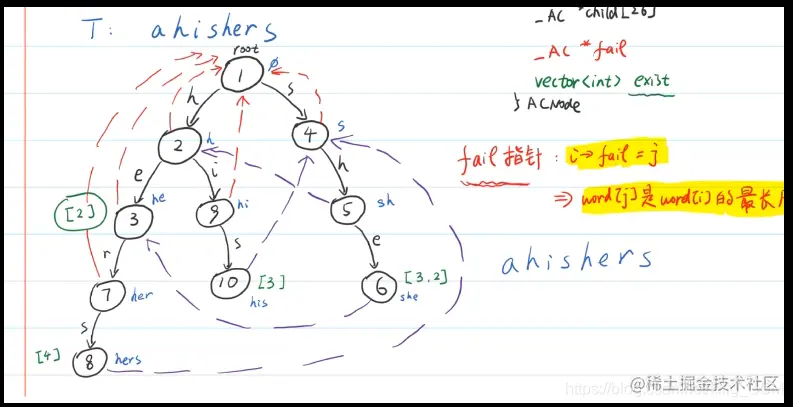 T: ahishers
_AC *child[26]
_AC *fail
vector<int> exist
} ACNode
root
1
ø
h
s
2
h
4
s
e
i
h
[2]
3
he
9
hi
5
sh
r
s
e
7
her
10
[3]
his
6
[3,2]
she
s
[4]
8
hers
fail指针: i→fail = j
⇒ word[j]是word[i]的最长
ahishers
@稀土掘金技术社区